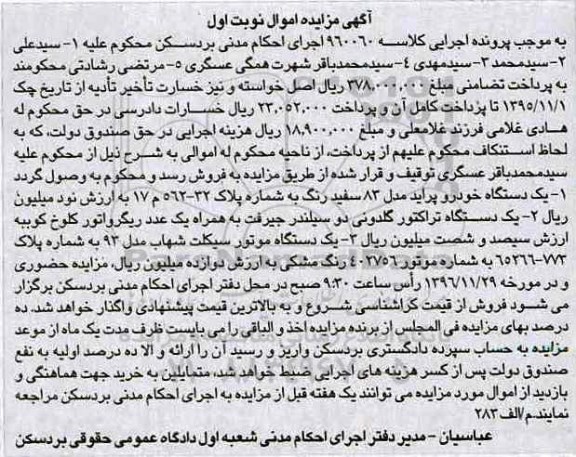 آگهی مزایده اموال نوبت اول
به موجب پرونده اجرایی کلاسه ۹۶۰۰۶۰ اجرای احکام مدنی بردسکن محکوم علیه ۱- سیدعلی
۲-سیدمحمد ۳-سیدمهدی ۴-سیدمحمدباقر شهرت همگی عسگری ۵-مرتضی رشادتی محکومند
به پرداخت تضامنی مبلغ ۳۷۸,۰۰۰,۰۰۰ ریال اصل خواسته و نیز خسارت تأخیر تأدیه از تاریخ چک
۱۳۹۵/۱۱/۱ تا پرداخت کامل آن و پرداخت ۲۳,۰۵۲,۰۰۰ ریال خسارات دادرسی در حق محکوم له
هادی غلامی فرزند غلامعلی و مبلغ ۱۸,۹۰۰,۰۰۰ ریال هزینه اجرایی در حق صندوق دولت، که به
لحاظ استنکاف محکوم علیهم از پرداخت، از ناحیه محکوم له اموالی به شرح ذیل از محکوم علیه
سیدمحمدباقر عسگری توقیف و قرار شده از طریق مزایده به فروش رسد و محکوم به وصول گردد
۱-یک دستگاه خودرو پراید مدل ۸۳ سفید رنگ به شماره پلاک ۳۲-۵۶۲ م ۱۷ به ارزش نود میلیون
ریال ۲- یک دستگاه تراکتور گلدونی دو سیلندر جیرفت به همراه یک عدد ریگرواتور کلوخ کوب به
ارزش سیصد و شصت میلیون ریال ۳- یک دستگاه موتور سیکلت شهاب مدل ۹۳ به شماره پلاک
۷۷۳-۶۵۲۶۶ به شماره موتور ۴۰۲۷۵۶ رنگ مشکی به ارزش دوازده میلیون ریال، مزایده حضوری
و در مورخه ۱۳۹۶/۱۱/۲۹ رأس ساعت ۹:۳۰ صبح در محل دفتر اجرای احکام مدنی بردسکن برگزار
می شود فروش از قیمت کارشناسی شروع و به بالاترین قیمت پیشنهادی واگذار خواهد شد. ده
درصد بهای مزایده فی المجلس از برنده مزایده اخذ و الباقی را می بایست ظرف مدت یک ماه از موعد
مزایده به حساب سپرده دادگستری بردسکن واریز و رسید آن را ارائه و الا ده درصد اولیه به نفع
صندوق دولت پس از کسر هزینه های اجرایی ضبط خواهد شد، متمایلین به خرید جهت هماهنگی و
بازدید از اموال مورد مزایده می توانند یک هفته قبل از مزایده به اجرای احکام مدنی بردسکن مراجعه
نمایند.م/الف ۲۸۳
عباسیان - مدیر دفتر اجرای احکام مدنی شعبه اول دادگاه عمومی حقوقی بردسکن